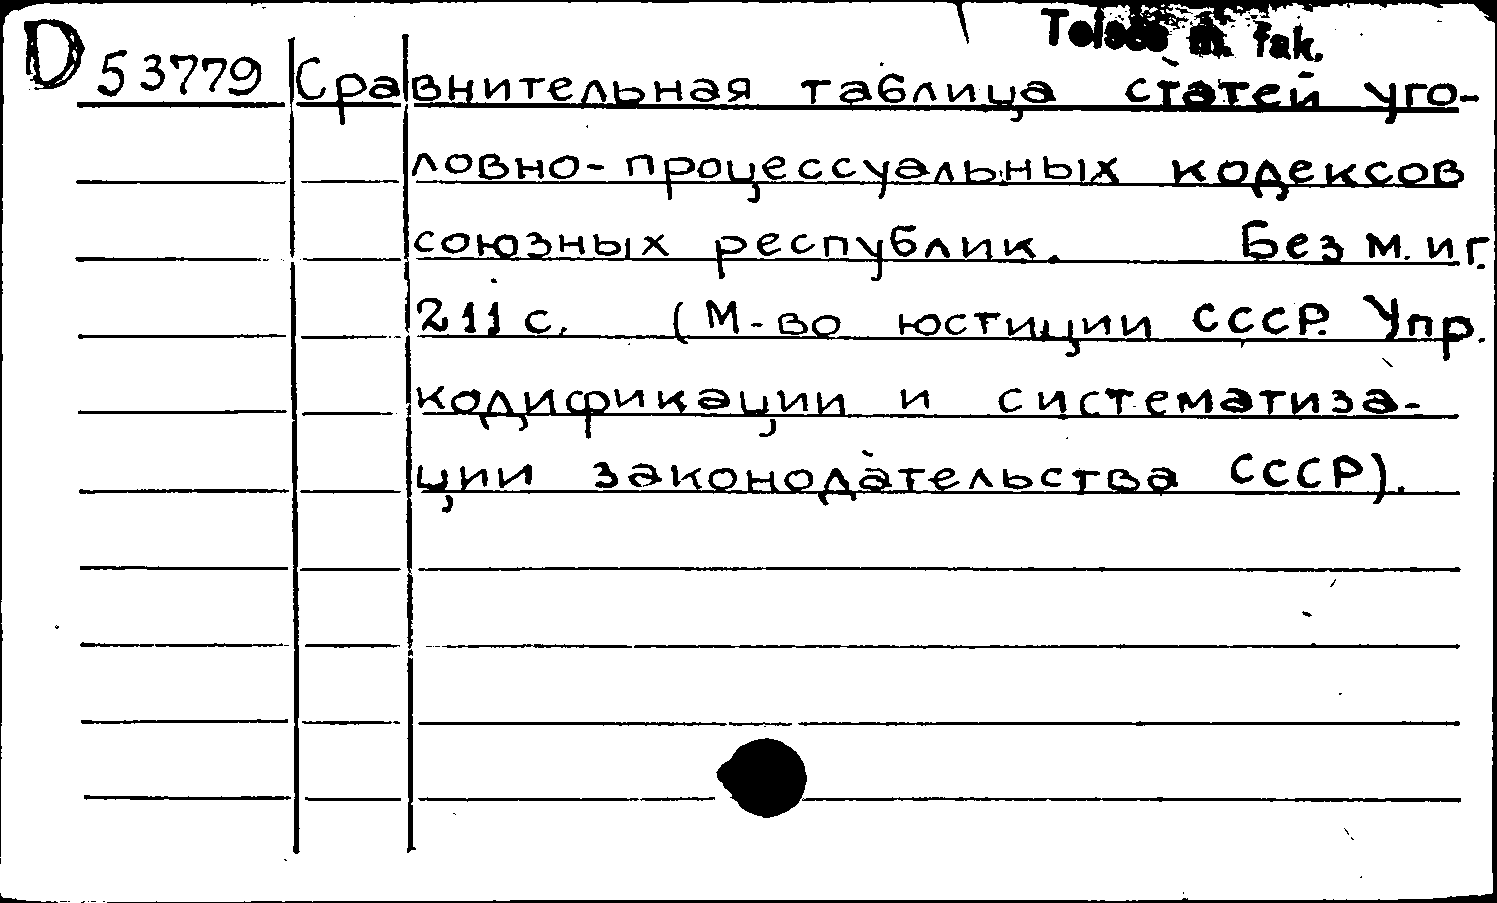 fak.
D 53779 Сравнительная таблица статей уго-
ловно-процессуальных кодексов
союзных республик. Без м. и г.
211 с. (М-во юстиции СССР. Упр.
кодификации и систематиза-
ции законодательства СССР).